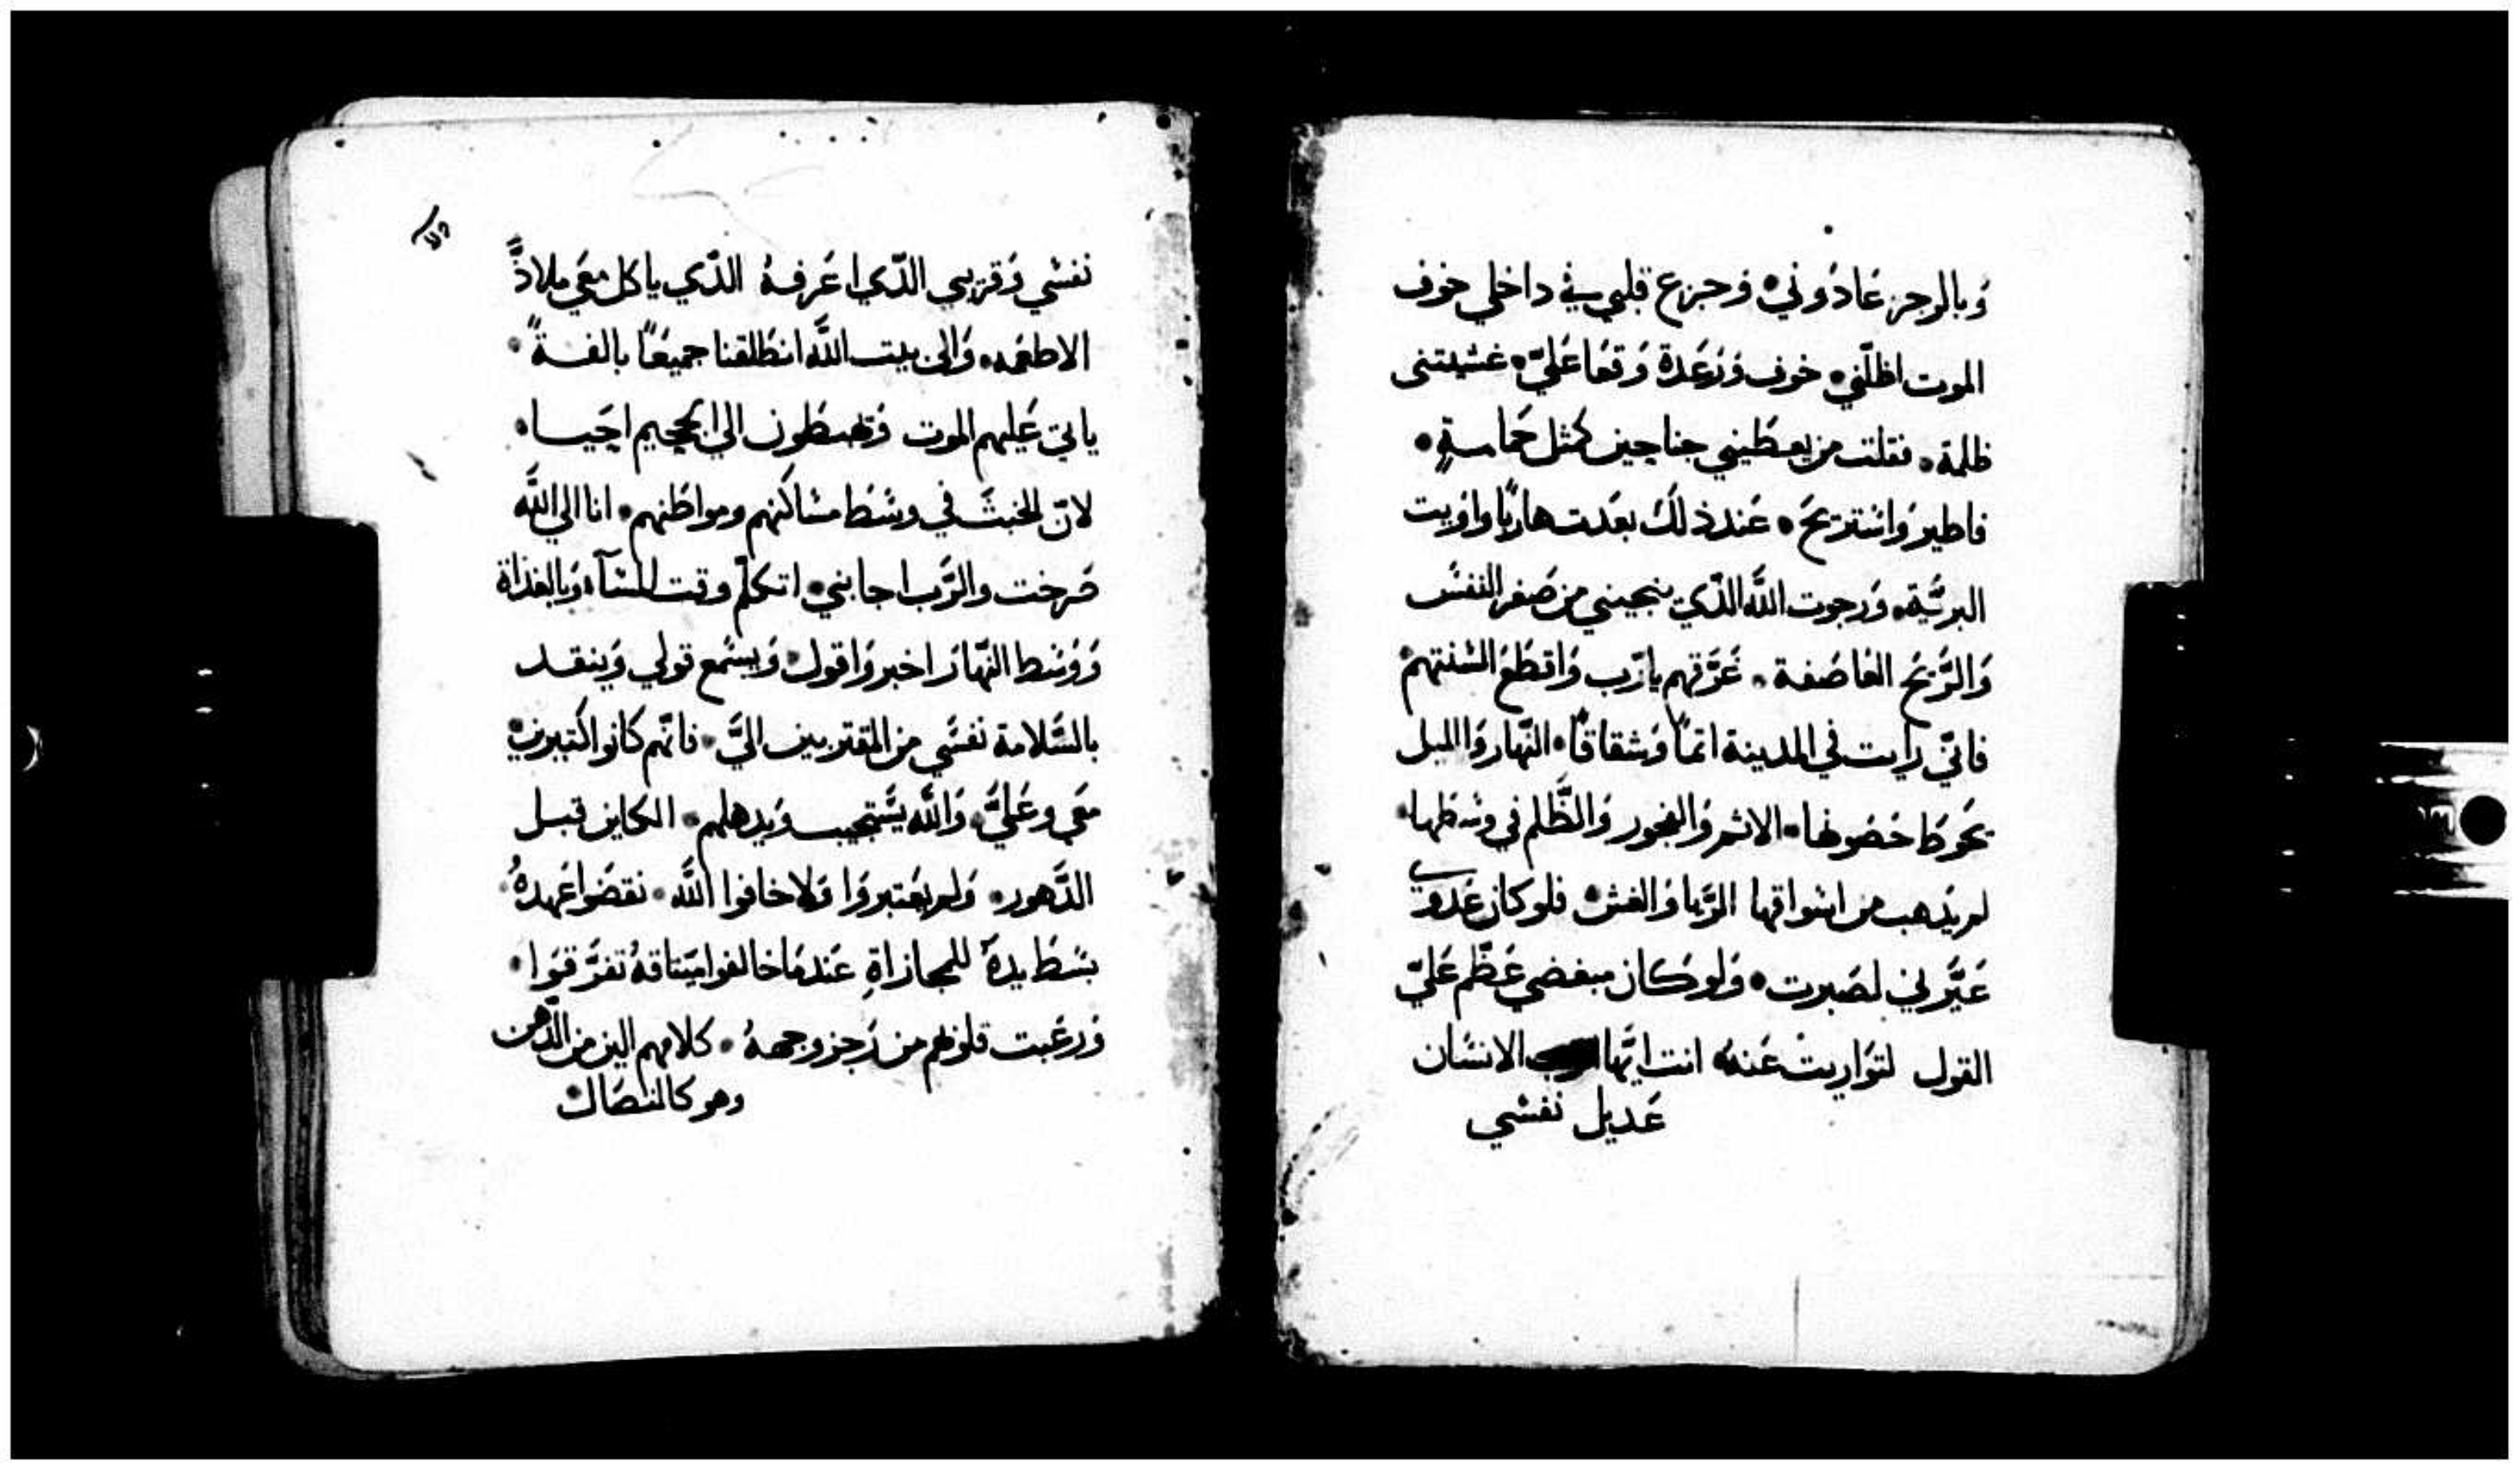 وَبالرجز عَادَوني • وَجزع قلبي في داخلي خوف
الموت اظلّني • خوف وَرَعَدة وَقعَا عَليّ • غشيتنى
ظلمة • فقلت من يعطيني جناحين كمثل حَمامـةٍ •
فاطير وَاستريحَ • عَند ذلك بعَدت هاربًا واوَيت
البريَّة • وَرجوت اللَّه الذّي ينجيني من صَغر النفسَ
وَالرَّيح العَاصَفة • غَرَّقهم يا رَب وَاقطَع السَنتهم
فانيّ رايت في المدينة اثمًا وَشقاقًا • النّهار وَالليل
يحَوطا حَصَونها • الاثم وَالفجور وَالظَّلم في وسَطها •
لم يَذهب من اسَواقها الرَّبا وَالغش • فلو كان عَدوي
عَيَّرني لصَبرت • وَلو كان مبغضي عَظّم عَليّ
القول لتوَاريت عَنهُ انت ايّها الانسَان
عَديل نفسَي
نفسَي وَقريبي الذّي اعَرفهُ الذّي ياكل معَي ملاذَّ
الاطعَمه • وَالى بيت اللَّه انطَلقنا جميعَا بالفـةً •
ياتي عَليهم الموت وَتهبطَون الي الجحيم احيَـا •
لانّ الخبثَ في وسَطَ مسَاكنهم ومواطنهم • انا الي اللَّه
صَرخت والرَّب اجابني • اتكلّم وقت المسَآ • وَبالغدَاة
وَوَسَط النّهار اخبر وَاقول • وَيسَمع قولي وَينقـد
بالسَّلامة نفسَي من المقتربين اليَّ • فانّهم كانوا كثيرين
معَي وعَليَّ • وَاللَّه يسَتجيب وَيدهلهم • الكاين قبـل
الدَّهور • وَلم يعَتبروَا وَلا خافوا اللَّه • نقضَوا عَهدهُ •
بسَطَ يدهَ للمجازاةِ عَندمَا خالفوا ميثاقهُ تفرَّقـوَا •
وَرعَبت قلوبهم من رَجز وجههُ • كلامهم الين من الدّهن
وهو كالنصَال